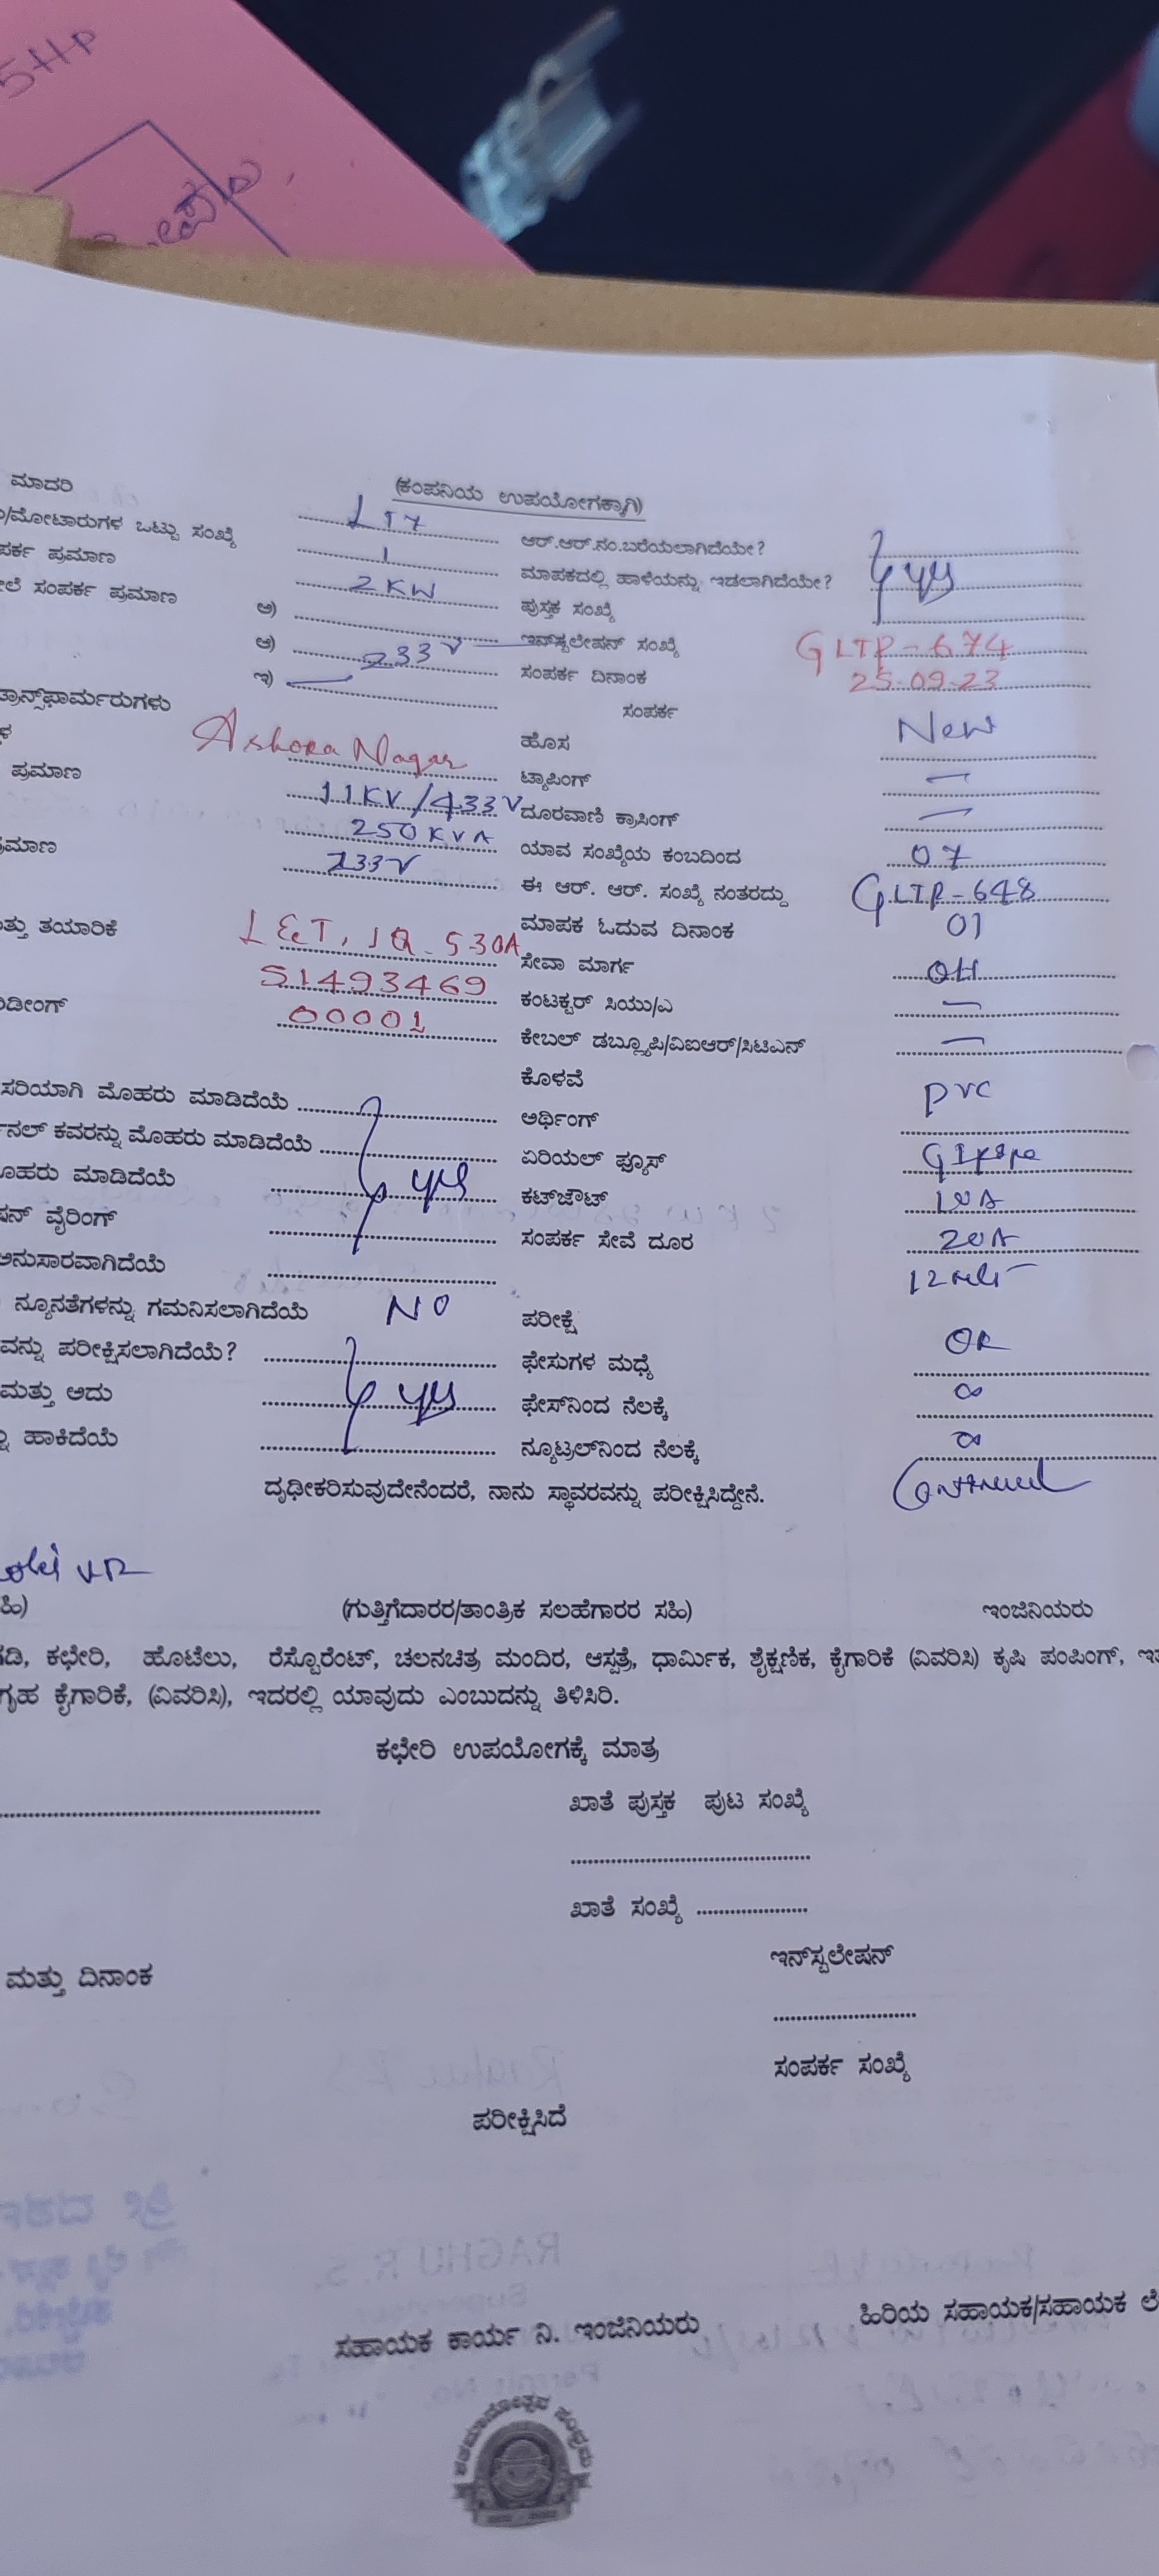 5HP
ಮಾದರಿ
(ಕಂಪನಿಯ ಉಪಯೋಗಕ್ಕಾಗಿ)
/ಮೋಟಾರುಗಳ ಒಟ್ಟು ಸಂಖ್ಯೆ LT7 ಆರ್.ಆರ್.ನಂ.ಬರೆಯಲಾಗಿದೆಯೇ?
ಪರ್ಕ ಪ್ರಮಾಣ 1 ಮಾಪಕದಲ್ಲಿ ಹಾಳೆಯನ್ನು ಇಡಲಾಗಿದೆಯೇ? yes
ಲೆ ಸಂಪರ್ಕ ಪ್ರಮಾಣ 2KW ಪುಸ್ತಕ ಸಂಖ್ಯೆ
ಅ) ಇನ್‌ಸ್ಟಲೇಷನ್ ಸಂಖ್ಯೆ GLTP-674
ಆ) 233V ಸಂಪರ್ಕ ದಿನಾಂಕ 25-09-23
ಇ) ಸಂಪರ್ಕ
ಟ್ರಾನ್ಸ್‌ಫಾರ್ಮರುಗಳು ಹೊಸ New
Ashoka Nagar ಟ್ಯಾಪಿಂಗ್ —
ಪ್ರಮಾಣ 11KV/433V ದೂರವಾಣಿ ಕ್ರಾಸಿಂಗ್ —
250KVA ಯಾವ ಸಂಖ್ಯೆಯ ಕಂಬದಿಂದ 07
ಪ್ರಮಾಣ 233V ಈ ಆರ್. ಆರ್. ಸಂಖ್ಯೆ ನಂತರದ್ದು GLTP-648
ಮಾಪಕ ಓದುವ ದಿನಾಂಕ 01
ತ್ತು ತಯಾರಿಕೆ L&T, 1Q-530A ಸೇವಾ ಮಾರ್ಗ OH
51493469 ಕಂಟಕ್ಟರ್ ಸಿಯು/ಎ —
ಡೀಂಗ್ 00001 ಕೇಬಲ್ ಡಬ್ಲ್ಯೂಪಿ/ವಿಐಆರ್/ಸಿಟಿಎನ್ —
ಕೊಳವೆ PVC
ಸರಿಯಾಗಿ ಮೊಹರು ಮಾಡಿದೆಯೆ ಅರ್ಥಿಂಗ್ GI pipe
ನಲ್ ಕವರನ್ನು ಮೊಹರು ಮಾಡಿದೆಯೆ ಏರಿಯಲ್ ಫ್ಯೂಸ್ 10A
ೊಹರು ಮಾಡಿದೆಯೆ yes ಕಟ್‌ಔಟ್ 20A
ಷನ್ ವೈರಿಂಗ್ ಸಂಪರ್ಕ ಸೇವೆ ದೂರ 12
ಅನುಸಾರವಾಗಿದೆಯೆ
ನ್ಯೂನತೆಗಳನ್ನು ಗಮನಿಸಲಾಗಿದೆಯೆ NO ಪರೀಕ್ಷೆ OK
ವನ್ನು ಪರೀಕ್ಷಿಸಲಾಗಿದೆಯೆ? ಫೇಸುಗಳ ಮಧ್ಯೆ ∞
ಮತ್ತು ಅದು yes ಫೇಸ್‌ನಿಂದ ನೆಲಕ್ಕೆ ∞
ಹಾಕಿದೆಯೆ ನ್ಯೂಟ್ರಲ್‌ನಿಂದ ನೆಲಕ್ಕೆ
ದೃಢೀಕರಿಸುವುದೇನೆಂದರೆ, ನಾನು ಸ್ಥಾವರವನ್ನು ಪರೀಕ್ಷಿಸಿದ್ದೇನೆ.
(ಗುತ್ತಿಗೆದಾರರ/ತಾಂತ್ರಿಕ ಸಲಹೆಗಾರರ ಸಹಿ) ಇಂಜಿನಿಯರು
ಗಡಿ, ಕಛೇರಿ, ಹೊಟೆಲು, ರೆಸ್ಟೊರೆಂಟ್, ಚಲನಚಿತ್ರ ಮಂದಿರ, ಆಸ್ಪತ್ರೆ, ಧಾರ್ಮಿಕ, ಶೈಕ್ಷಣಿಕ, ಕೈಗಾರಿಕೆ (ವಿವರಿಸಿ) ಕೃಷಿ ಪಂಪಿಂಗ್,
ಗೃಹ ಕೈಗಾರಿಕೆ, (ವಿವರಿಸಿ), ಇದರಲ್ಲಿ ಯಾವುದು ಎಂಬುದನ್ನು ತಿಳಿಸಿರಿ.
ಕಛೇರಿ ಉಪಯೋಗಕ್ಕೆ ಮಾತ್ರ
ಖಾತೆ ಪುಸ್ತಕ ಪುಟ ಸಂಖ್ಯೆ
ಖಾತೆ ಸಂಖ್ಯೆ
ಇನ್‌ಸ್ಟಲೇಷನ್
ಮತ್ತು ದಿನಾಂಕ
ಸಂಪರ್ಕ ಸಂಖ್ಯೆ
ಪರೀಕ್ಷಿಸಿದೆ
ಸಹಾಯಕ ಕಾರ್ಯ ನಿ. ಇಂಜಿನಿಯರು ಹಿರಿಯ ಸಹಾಯಕ/ಸಹಾಯಕ